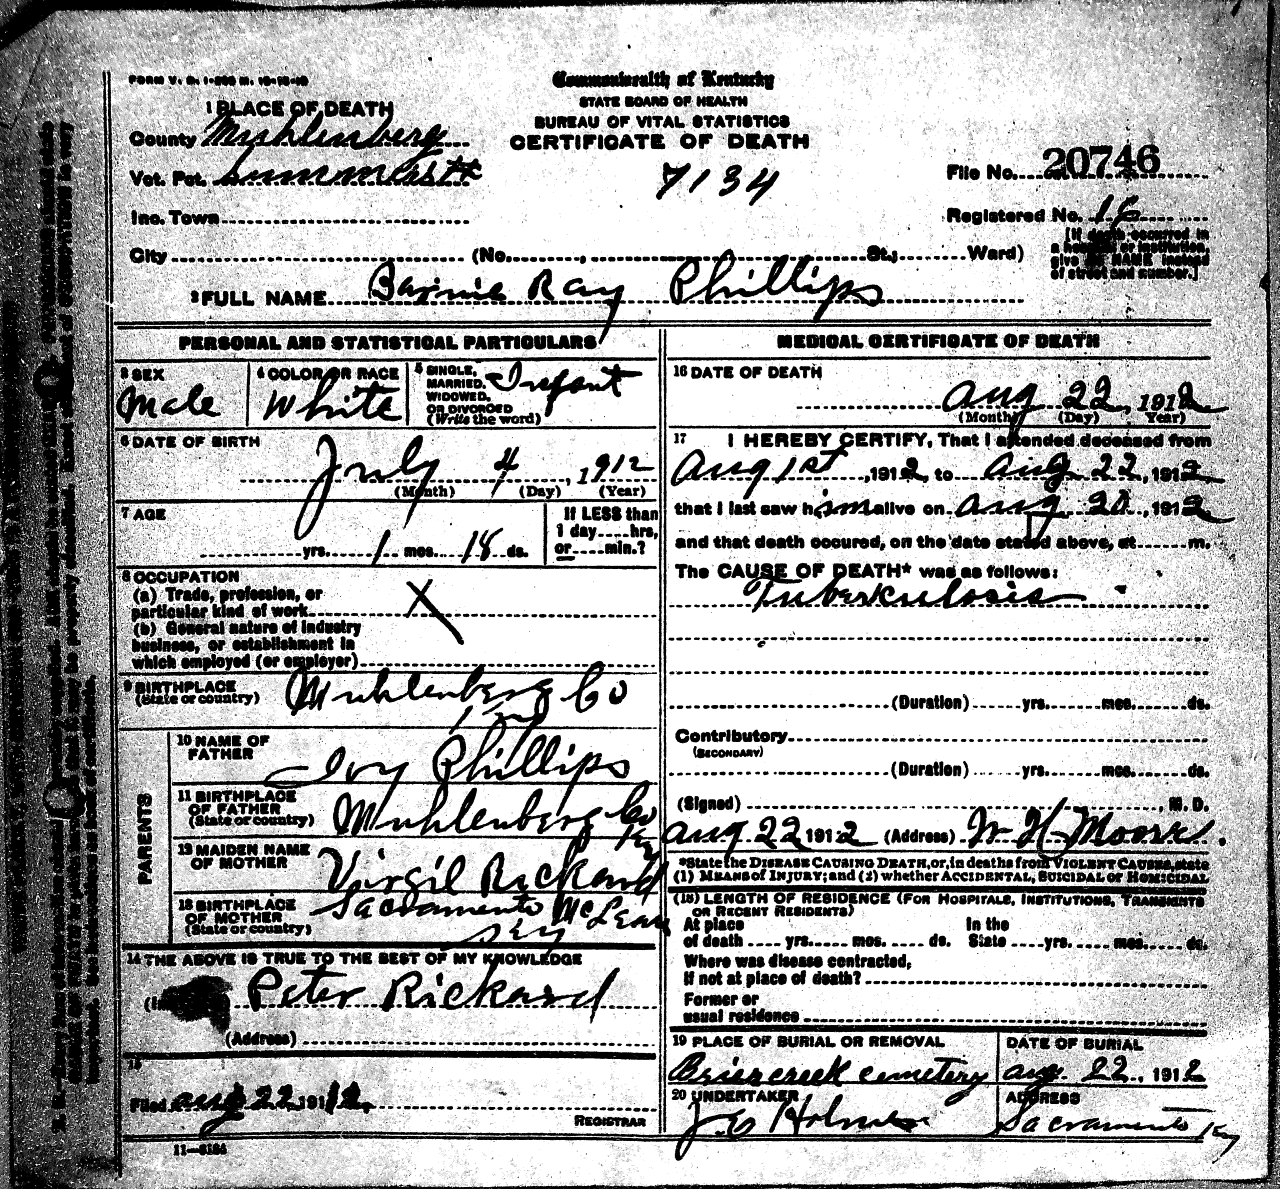 FORM V. S. 1-
Commonwealth of Kentucky
STATE BOARD OF HEALTH
BUREAU OF VITAL STATISTICS
CERTIFICATE OF DEATH
1 PLACE OF DEATH
County Muhlenberg
Vot. Pct.
7134
File No. 20746
Inc. Town
Registered No. 16
[If death occurred in a hospital or institution, give its NAME instead of street and number.]
City (No. , St.; Ward)
2 FULL NAME Barnie Ray Phillips
PERSONAL AND STATISTICAL PARTICULARS
3 SEX Male
4 COLOR OR RACE White
5 SINGLE, MARRIED, WIDOWED, OR DIVORCED (Write the word) Infant
6 DATE OF BIRTH
July 4, 1912
(Month) (Day) (Year)
7 AGE
yrs. 1 mos. 18 ds.
If LESS than 1 day hrs, or min.?
8 OCCUPATION
(a) Trade, profession, or particular kind of work X
(b) General nature of industry business, or establishment in which employed (or employer)
9 BIRTHPLACE (State or country) Muhlenberg Co Ky
PARENTS
10 NAME OF FATHER Ivy Phillips
11 BIRTHPLACE OF FATHER (State or country) Muhlenberg Co Ky
12 MAIDEN NAME OF MOTHER Virgil Rickard
13 BIRTHPLACE OF MOTHER (State or country) Sacramento McLean Ky
14 THE ABOVE IS TRUE TO THE BEST OF MY KNOWLEDGE
Peter Rickard
(Address)
15
Filed Aug 22 1912
REGISTRAR
11-5184
MEDICAL CERTIFICATE OF DEATH
16 DATE OF DEATH
Aug 22, 1912
(Month) (Day) (Year)
17 I HEREBY CERTIFY, That I attended deceased from
Aug 1st, 1912, to Aug 22, 1912
that I last saw him alive on Aug 20, 1912
and that death occured, on the date stated above, at m.
The CAUSE OF DEATH* was as follows:
Tuberkulosis
(Duration) yrs. mos. ds.
Contributory
(SECONDARY)
(Duration) yrs. mos. ds.
(Signed) , M. D.
Aug 22 1912 (Address) W H Moore
*State the DISEASE CAUSING DEATH, or, in deaths from VIOLENT CAUSES, state
(1) MEANS OF INJURY; and (2) whether ACCIDENTAL, SUICIDAL or HOMICIDAL
(18) LENGTH OF RESIDENCE (FOR HOSPITALS, INSTITUTIONS, TRANSIENTS
OR RECENT RESIDENTS)
At place of death yrs. mos. ds. In the State yrs. mos. ds.
Where was disease contracted,
If not at place of death?
Former or
usual residence
19 PLACE OF BURIAL OR REMOVAL
Briercreek cemetery
DATE OF BURIAL
Aug. 22, 1912
20 UNDERTAKER
ADDRESS
Sacramento Ky